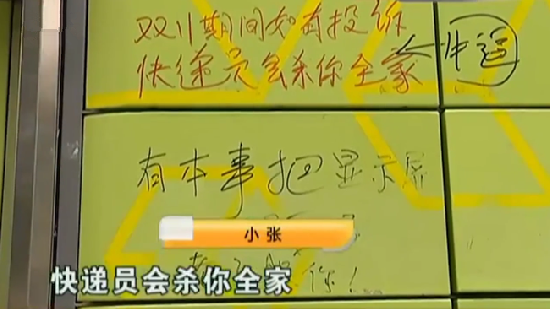 双11期间如有投诉
快递员会杀你全家
申通
有本事把显示屏
小张
你!
快递员会杀你全家